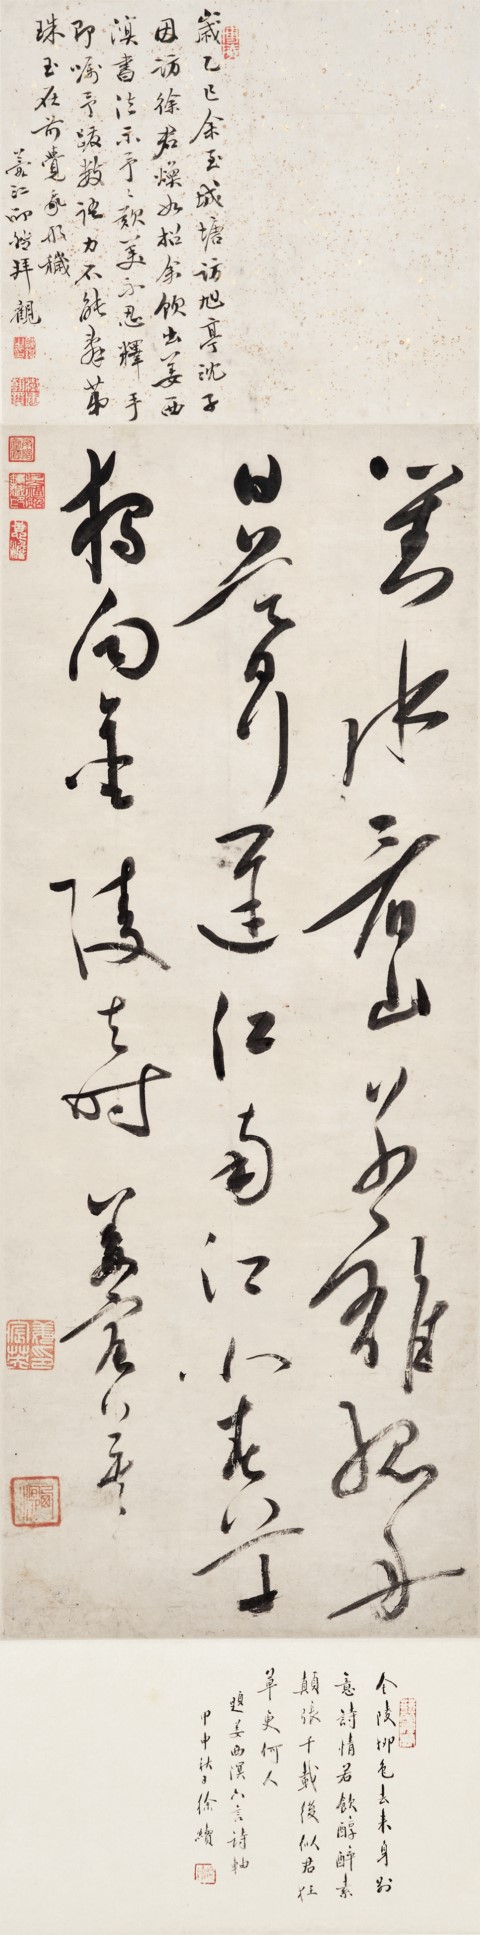 歲乙巳余至城塘訪旭亭沈子
因訪徐君燥如招余飲出姜西
溟書法示予予歎美不忍釋手
即囑予跋數語力不能辭第
珠玉在前覺我形穢
拜觀
對水看山欲離孤舟
日暮行遲江南江北春草
獨向金陵去時
姜宸英
金陵柳色去來身別
意詩情若飲醇醉素
顛張千載後似君狂
草更何人
題姜西溟六言詩軸
甲申秋日徐績